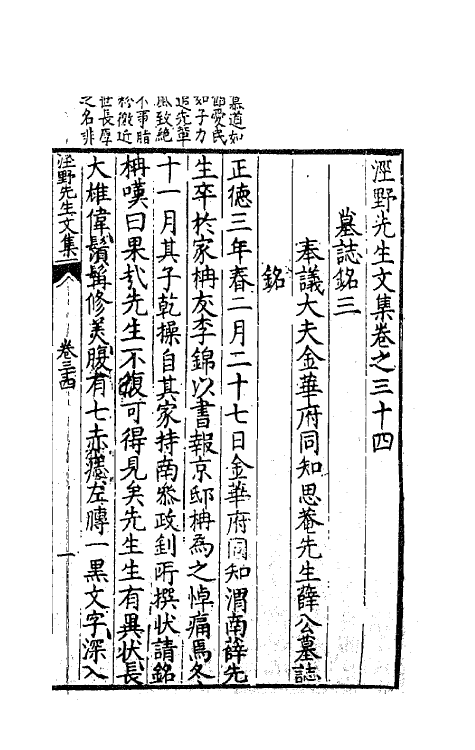 涇野先生文集卷之三十四
墓誌銘三
奉議大夫金華府同知思菴先生薛公墓誌
銘
正德三年春二月二十七日金華府同知渭南薛先
生卒於家柟友李錦以書報京邸柟為之悼痛焉冬
十一月其子乾操自其家持南叅政釗所撰状請銘
柟嘆曰果㢤先生不復可得見矣先生生有異状長
大雄偉鬚髯修美腹有七赤痣左膊一黒文字深入
涇野先生文集
卷三十四
一
慕道如
酷愛民
如子力
追先軰
風致絶
不事脂
粉微近
世長厚
之名非